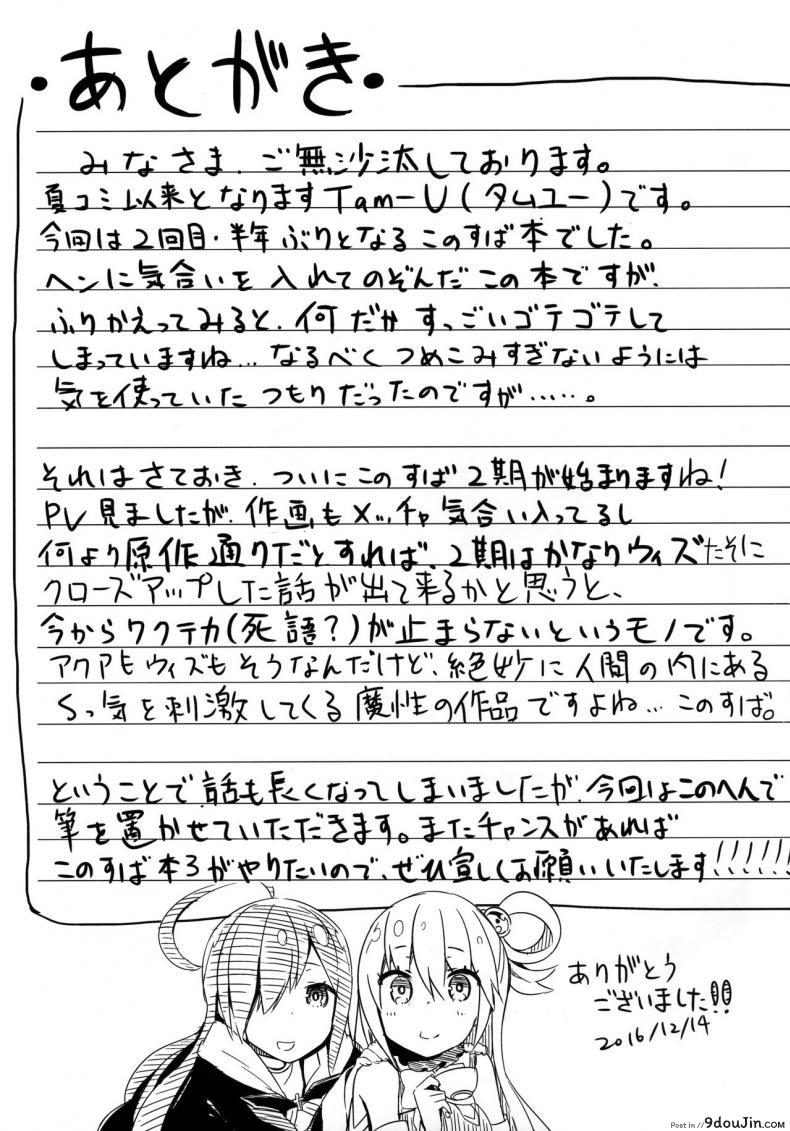 ・あとがき・
みなさま、ご無沙汰しております。
夏コミ以来となりますTam-U(タムユー)です。
今回は2回目・半年ぶりとなるこのすば本でした。
ヘンに気合いを入れてのぞんだこの本ですが、
ふりかえってみると、何だかすっごいゴテゴテして
しまっていますね…なるべくつめこみすぎないようには
気を使っていたつもりだったのですが……。
それはさておき、ついにこのすば2期が始まりますね!
PV見ましたが、作画もメッチャ気合い入ってるし
何より原作通りだとすれば、2期はかなりウィズたそに
クローズアップした話が出て来るかと思うと、
今からワクテカ(死語?)が止まらないというモノです。
アクアもウィズもそうなんだけど、絶妙に人間の内にある
Sっ気を刺激してくる魔性の作品ですよね…このすば。
ということで話も長くなってしまいましたが、今回はこのへんで
筆を置かせていただきます。またチャンスがあれば
このすば本3がやりたいので、ぜひ宜しくお願いいたします!!!!!!
ありがとう
ございました!!
2016/12/14
Post in // 9douJin.com